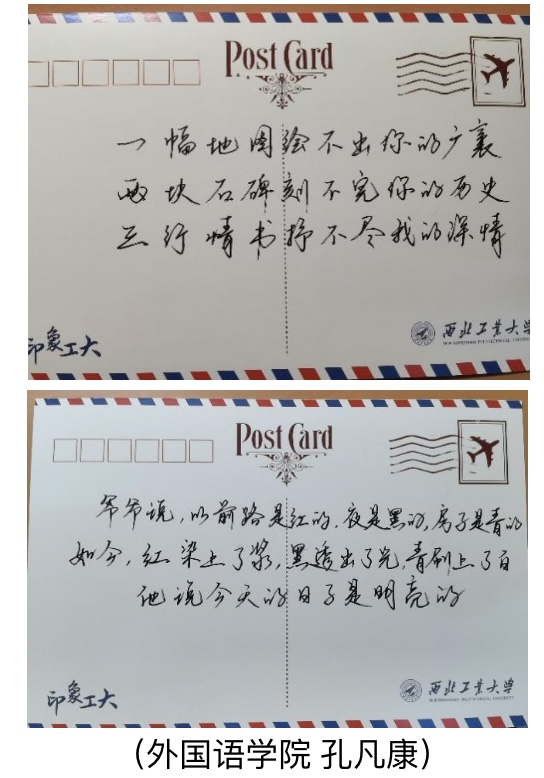 Post Card
一幅地图绘不出你的广袤
两块石碑刻不完你的历史
三行情书抒不尽我的深情
印象工大
西北工业大学
Post Card
爷爷说，以前路是红的，夜是黑的，房子是青的
如今，红染上了浆，黑透出了光，青刷上了白
他说今天的日子是明亮的
印象工大
西北工业大学
（外国语学院 孔凡康）